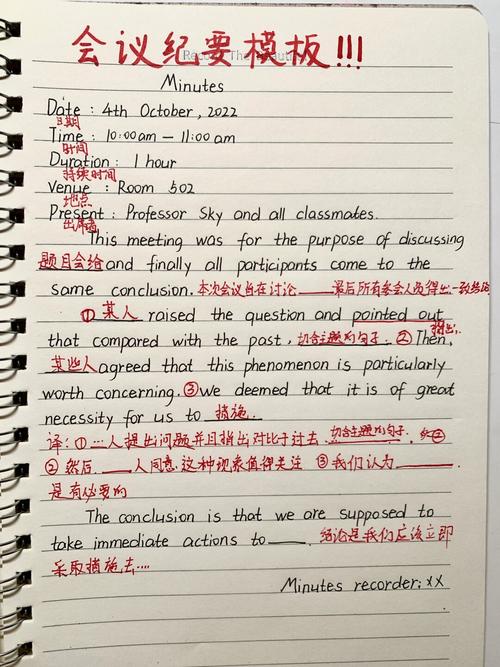 会议纪要模板!!!
Minutes
Date : 4th October, 2022
日期
Time : 10:00am — 11:00am
时间
Duration : 1 hour
持续时间
Venue : Room 502
地点
Present : Professor Sky and all classmates.
出席者
This meeting was for the purpose of discussing
题目会给 and finally all participants come to the
same conclusion. 本次会议旨在讨论____最后所有参会人员得出一致结论
① 某人 raised the question and pointed out
指出..
that compared with the past, 切合主题的句子. ② Then,
某些人 agreed that this phenomenon is particularly
worth concerning. ③ we deemed that it is of great
necessity for us to 措施.
译: ① …人提出问题并且指出对比于过去, 切合主题的句子.
② 然后, ____人同意, 这种现象值得关注 ③ 我们认为____.
是有必要的
The conclusion is that we are supposed to
take immediate actions to ____. 结论是我们应该立即
采取措施去....
Minutes recorder: xx